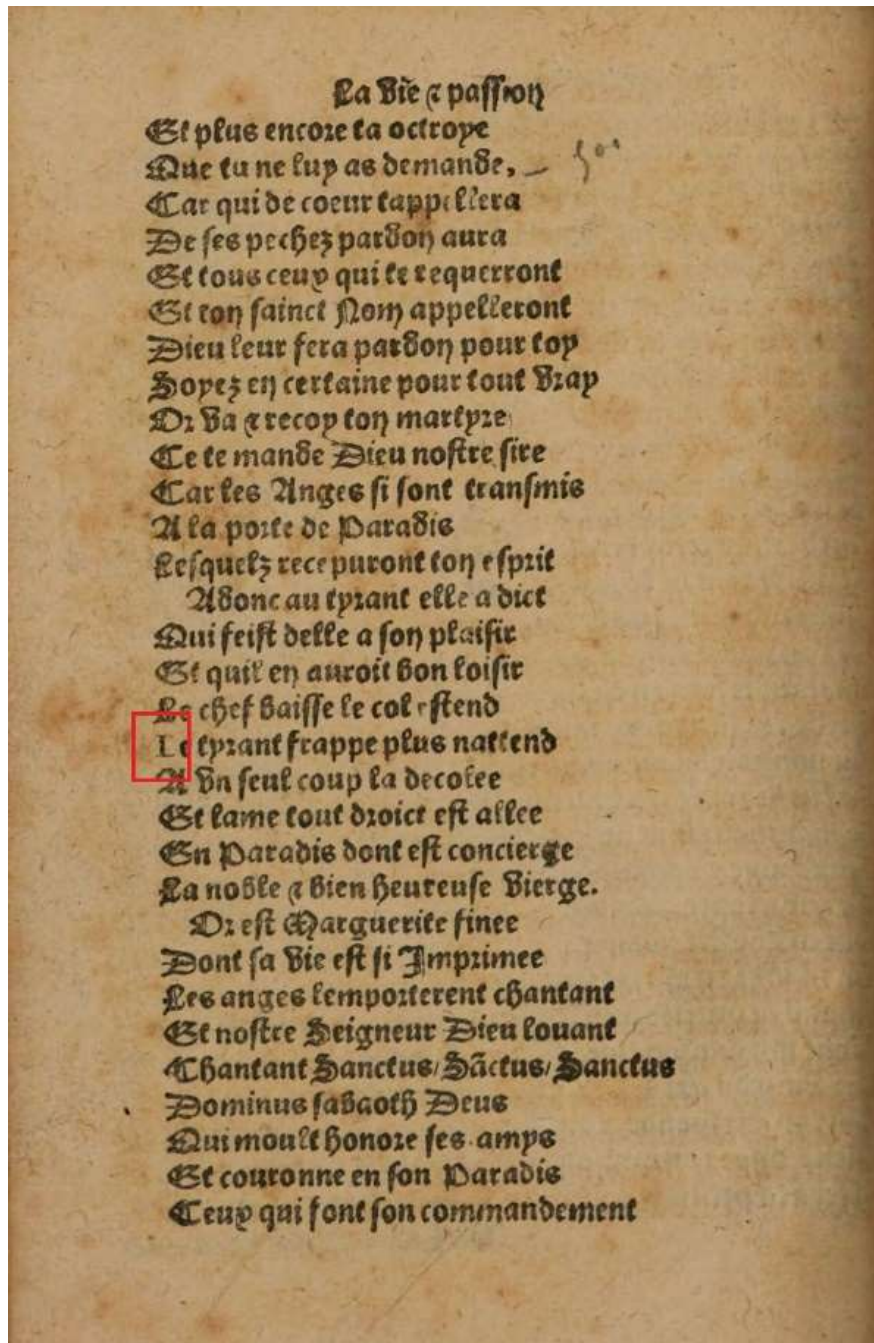 La vie & passion
Et plus encore ta octroye
Que tu ne luy as demande,
Car qui de coeur tappellera
De ses pechez pardon aura
Et tous ceux qui te requerront
Et ton sainct Nom appelleront
Dieu leur fera pardon pour toy
Soyez en certaine pour tout vray
Or va & recoy ton martyre
Ce te mande Dieu nostre sire
Car les Anges si sont transmis
A la porte de Paradis
Lesquelz recepuront ton esprit
Adonc au tyrant elle a dict
Qui feist delle a son plaisir
Et quil en auroit bon loisir
Le chef baisse le col estend
Le tyrant frappe plus nattend
A vn seul coup la decolee
Et lame tout droict est allee
En Paradis dont est concierge
La noble & bien heureuse vierge.
Or est Marguerite finee
Dont sa vie est si Imprimee
Les anges lemporterent chantant
Et nostre Seigneur Dieu louant
Chantant Sanctus/ Sãctus/ Sanctus
Dominus sabaoth Deus
Qui moult honore ses amys
Et couronne en son Paradis
Ceux qui font son commandement